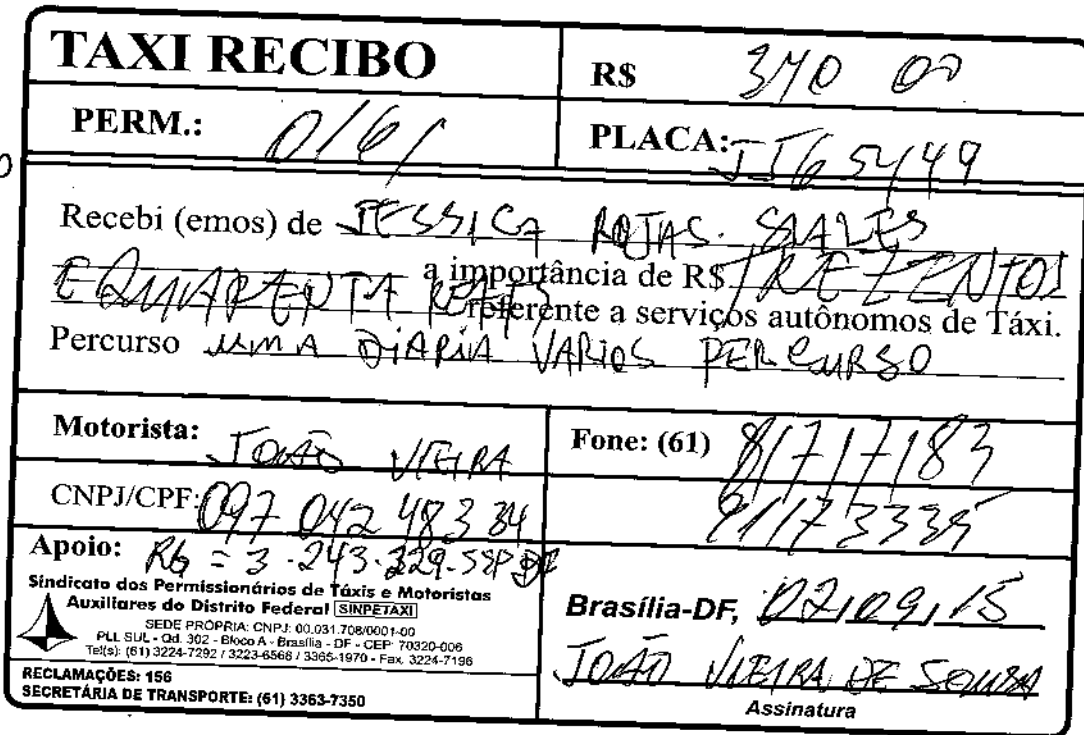 TAXI RECIBO
R$ 340 00
PERM.: 0161
PLACA: JJG 5449
Recebi (emos) de JESSICA ROJAS SALES
a importância de R$ TREZENTOS
E QUARENTA REAIS referente a serviços autônomos de Táxi.
Percurso UMA DIARIA VARIOS PERCURSO
Motorista: JOÃO VIEIRA
Fone: (61) 81717183
CNPJ/CPF: 097 042 483 34
91173335
Apoio: RG = 3.243.329-SSP DF
Sindicato dos Permissionários de Táxis e Motoristas
Auxiliares do Distrito Federal SINPETAXI
SEDE PRÓPRIA: CNPJ: 00.031.708/0001-00
PLL SUL - Qd. 302 - Bloco A - Brasília - DF - CEP: 70320-006
Tel(s): (61) 3224-7292 / 3223-6566 / 3365-1970 - Fax. 3224-7196
RECLAMAÇÕES: 156
SECRETÁRIA DE TRANSPORTE: (61) 3363-7350
Brasília-DF, 02/09/15
JOÃO VIEIRA DE SOUSA
Assinatura